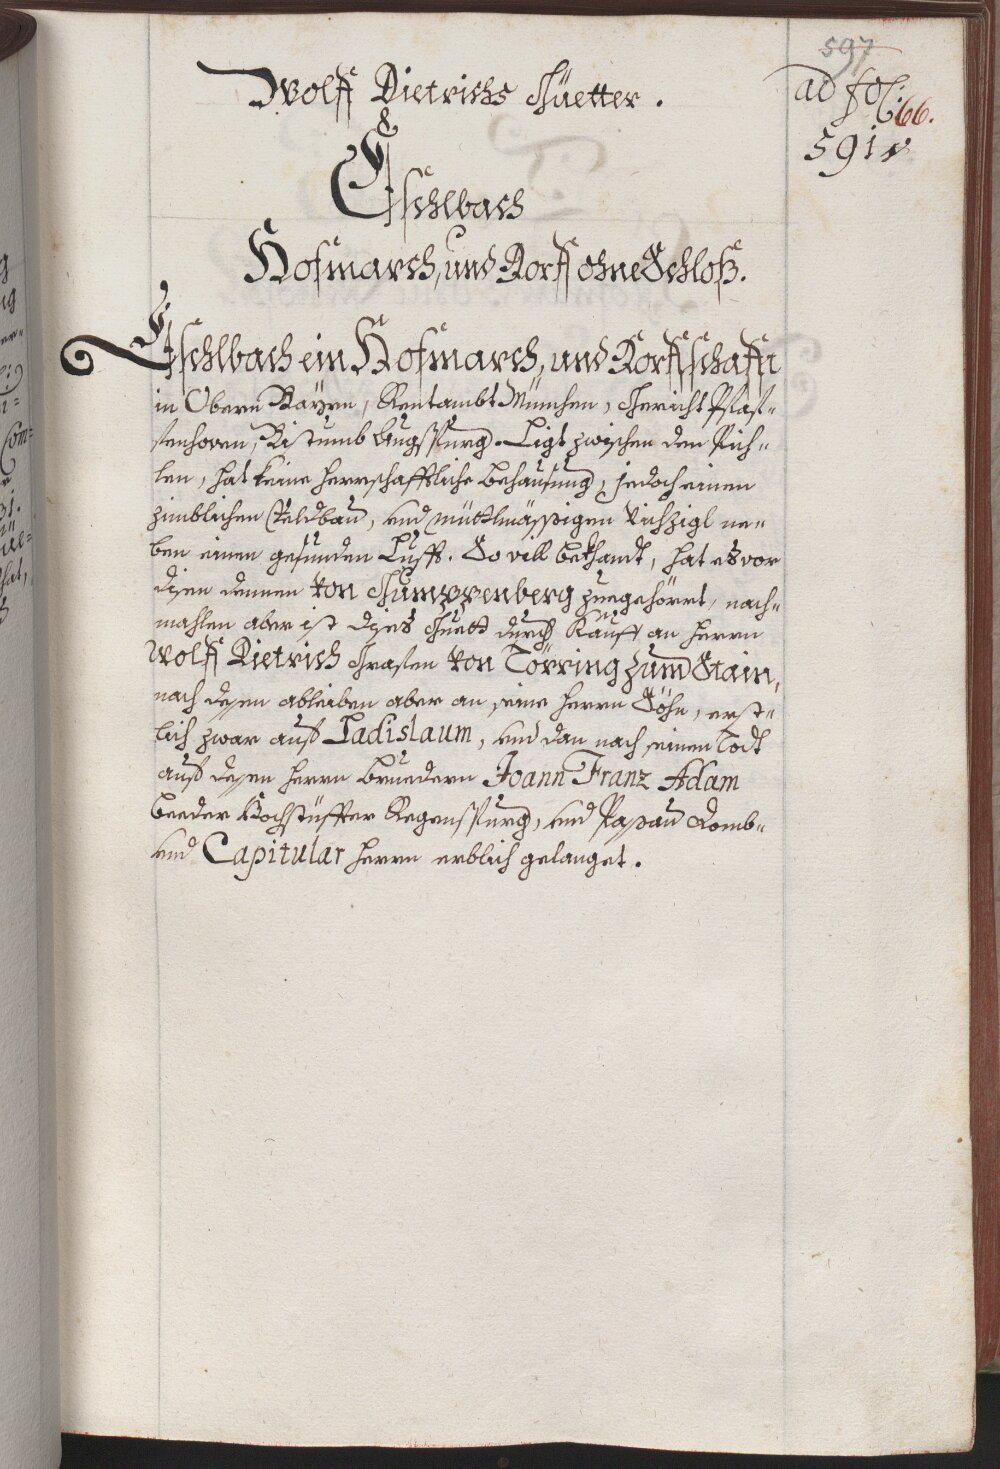 597
ad fol:
66.
591v
Wolff Dietrichs Güetter.
Eschlbach
Hofmarch, und Dorff ohne Schloß.
Eschlbach ein Hofmarch, und Dorffschafft
in Obern Bayrn, Rentambt München, Gericht Pfaf-
fenhoven, Bistumb Augspurg. Ligt zwischen den Pich-
len, hat keine herrschafftliche Behausung, jedoch einen
zimblichen Veldbau, und müttlmässigen Vichzigl ne-
ben einen gesunden Lufft. So vill bekhandt, hat es vor
disen denen von Gumppenberg zuegehörrt, nach-
mahlen aber ist dises Guett durch Kauff an Herrn
Wolff Dietrich Grafen von Törring zum Stain,
nach dessen ableiben aber an seine Herrn Söhn, erst-
lich zwar auf Ladislaum, und dan nach seinen Todt
auf dessen Herrn Bruedern Joann Franz Adam
beeder Hochstüffter Regenspurg, und Passau Domb-
und Capitular Herrn erblich gelanget.